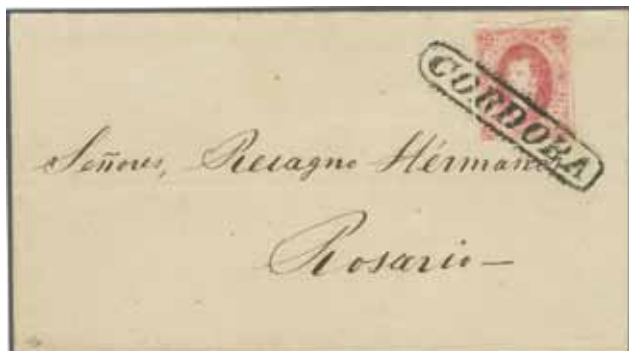 CORDOBA
Señores, Recagno Hérmanos
Rosario—